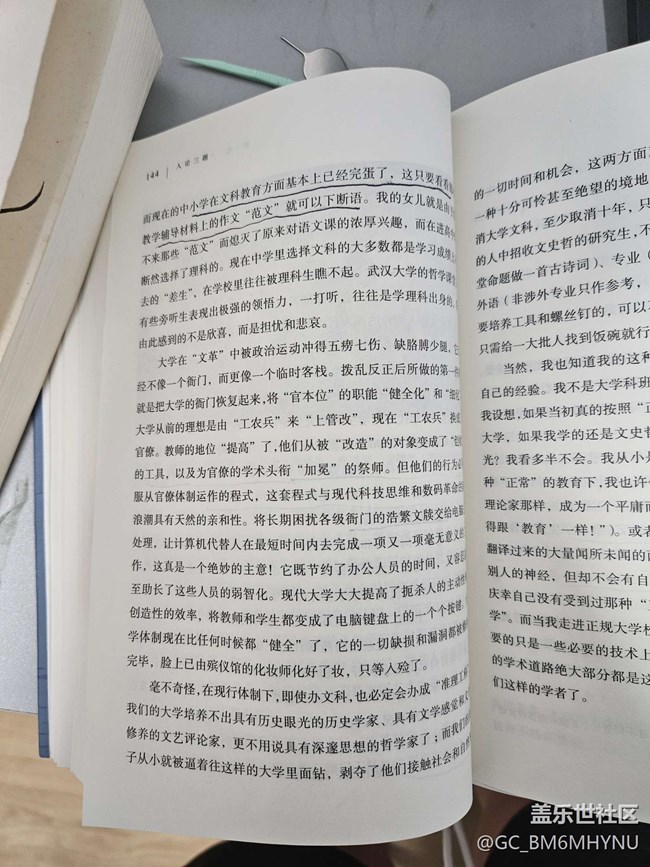 144 人论三题
而现在的中小学在文科教育方面基本上已经完蛋了，这只要看看
教学辅导材料上的作文“范文”就可以下断语。我的女儿就是由
不来那些“范文”而熄灭了原来对语文课的浓厚兴趣，而在进高中
断然选择了理科的。现在中学里选择文科的大多数都是学习成绩
去的“差生”，在学校里往往被理科生瞧不起。武汉大学的哲学课
有些旁听生表现出极强的领悟力，一打听，往往是学理科出身的，
由此感到的不是欣喜，而是担忧和悲哀。
大学在“文革”中被政治运动冲得五痨七伤、缺胳膊少腿，
经不像一个衙门，而更像一个临时客栈。拨乱反正后所做的第一
就是把大学的衙门恢复起来，将“官本位”的职能“健全化”和“细
大学从前的理想是由“工农兵”来“上管改”，现在“工农兵”换
官僚。教师的地位“提高”了，他们从被“改造”的对象变成了
的工具，以及为官僚的学术头衔“加冕”的祭师。但他们的行为
服从官僚体制运作的程式，这套程式与现代科技思维和数码革命
浪潮具有天然的亲和性。将长期困扰各级衙门的浩繁文牍交给电脑
处理，让计算机代替人在最短时间内去完成一项又一项毫无意义的
作，这真是一个绝妙的主意！它既节约了办公人员的时间，又容
至助长了这些人员的弱智化。现代大学大大提高了扼杀人的主动性
创造性的效率，将教师和学生都变成了电脑键盘上的一个个按键。
学体制现在比任何时候都“健全”了，它的一切缺损和漏洞都被
完毕，脸上已由殡仪馆的化妆师化好了妆，只等入殓了。
毫不奇怪，在现行体制下，即使办文科，也必定会办成“准理工
我们的大学培养不出具有历史眼光的历史学家、具有文学感觉和
修养的文艺评论家，更不用说具有深邃思想的哲学家了；而我们
子从小就被逼着往这样的大学里面钻，剥夺了他们接触社会和自
的一切时间和机会，这两方面
一种十分可怜甚至绝望的境地
消大学文科，至少取消十年，只
的人中招收文史哲的研究生，不
堂命题做一首古诗词）、专业（
外语（非涉外专业只作参考，
要培养工具和螺丝钉的，可以
只需给一大批人找到饭碗就行
当然，我也知道我的这种
自己的经验。我不是大学科班
我设想，如果当初真的按照“正
大学，如果我学的还是文史哲
光？我看多半不会。我从小是
种“正常”的教育下，我也许
理论家那样，成为一个平庸而
得跟‘教育’一样！”）。或者
翻译过来的大量闻所未闻的西
别人的神经，但却不会有自
庆幸自己没有受到过那种“
学”。而当我走进正规大学
要的只是一些必要的技术上
的学术道路绝大部分都是这
们这样的学者了。
盖乐世社区
@GC_BM6MHYNU